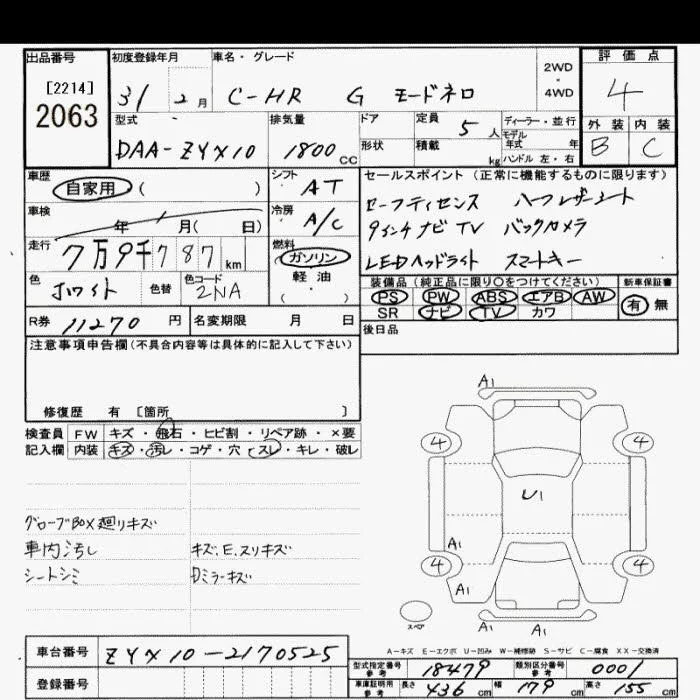 出品番号 初度登録年月 車名・グレード 評価点
[2214]
2063
31 2月 C-HR G モードネロ 2WD・4WD 4
型式 排気量 ドア 定員 5人 ディーラー・並行 外装 内装
モデル
年式 年
DAA-ZYX10 1800cc 形状 積載 kg ハンドル 左・右 B C
車歴 シフト セールスポイント(正常に機能するものに限ります)
自家用 ( ) AT
セーフティセンス ハーフレザーシート
車検 年 月( 日) 冷房 A/C
9インチナビTV バックカメラ
走行 7万9千787km 燃料 ガソリン
LEDヘッドライト スマートキー
軽油
( )
色 ホワイト 色替 色コード 2NA
装備品(純正品に限り○をつけてください) 新車保証書
PS PW ABS エアB AW 有 無
SR ナビ TV カワ
R券 11270円 名変期限 月 日
後日品
注意事項申告欄(不具合内容等は具体的に記入して下さい)
修復歴 有 [箇所 ]
検査員 FW キズ・飛石・ヒビ割・リペア跡・×要
記入欄 内装 キズ・汚レ・コゲ・穴・スレ・キレ・破レ
A1
4 4
U1
グローブBOX廻りキズ
車内汚し キズ、E、スリキズ
シートシミ Dミラーキズ
A1
4 4
A1
スペア
A1 A1
A-キズ E-エクボ U-凹み W-補修跡 S-サビ C-腐食 XX-交換済
車台番号 ZYX10-2170525
型式指定番号 参考 18479 類別区分番号 参考 0001
登録番号
車庫証明用 参考 長さ 436cm 幅 179cm 高さ 155cm